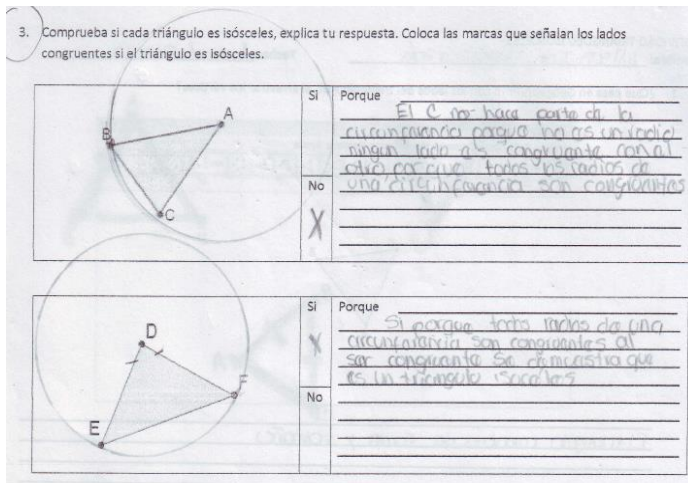 3. Comprueba si cada triángulo es isósceles, explica tu respuesta. Coloca las marcas que señalan los lados
congruentes si el triángulo es isósceles.
A
B
C
Si
Porque
El C no hace parte de la
circunferencia porque no es un radio
ningun lado es congruente con al
otro, porque todos los radios de
una circunferencia son congruentes
No
X
D
E
F
Si
Porque
X
Si porque todos radios de una
circunferencia son congruentes al
ser congruente se demuestra que
es un triangulo isoceles
No